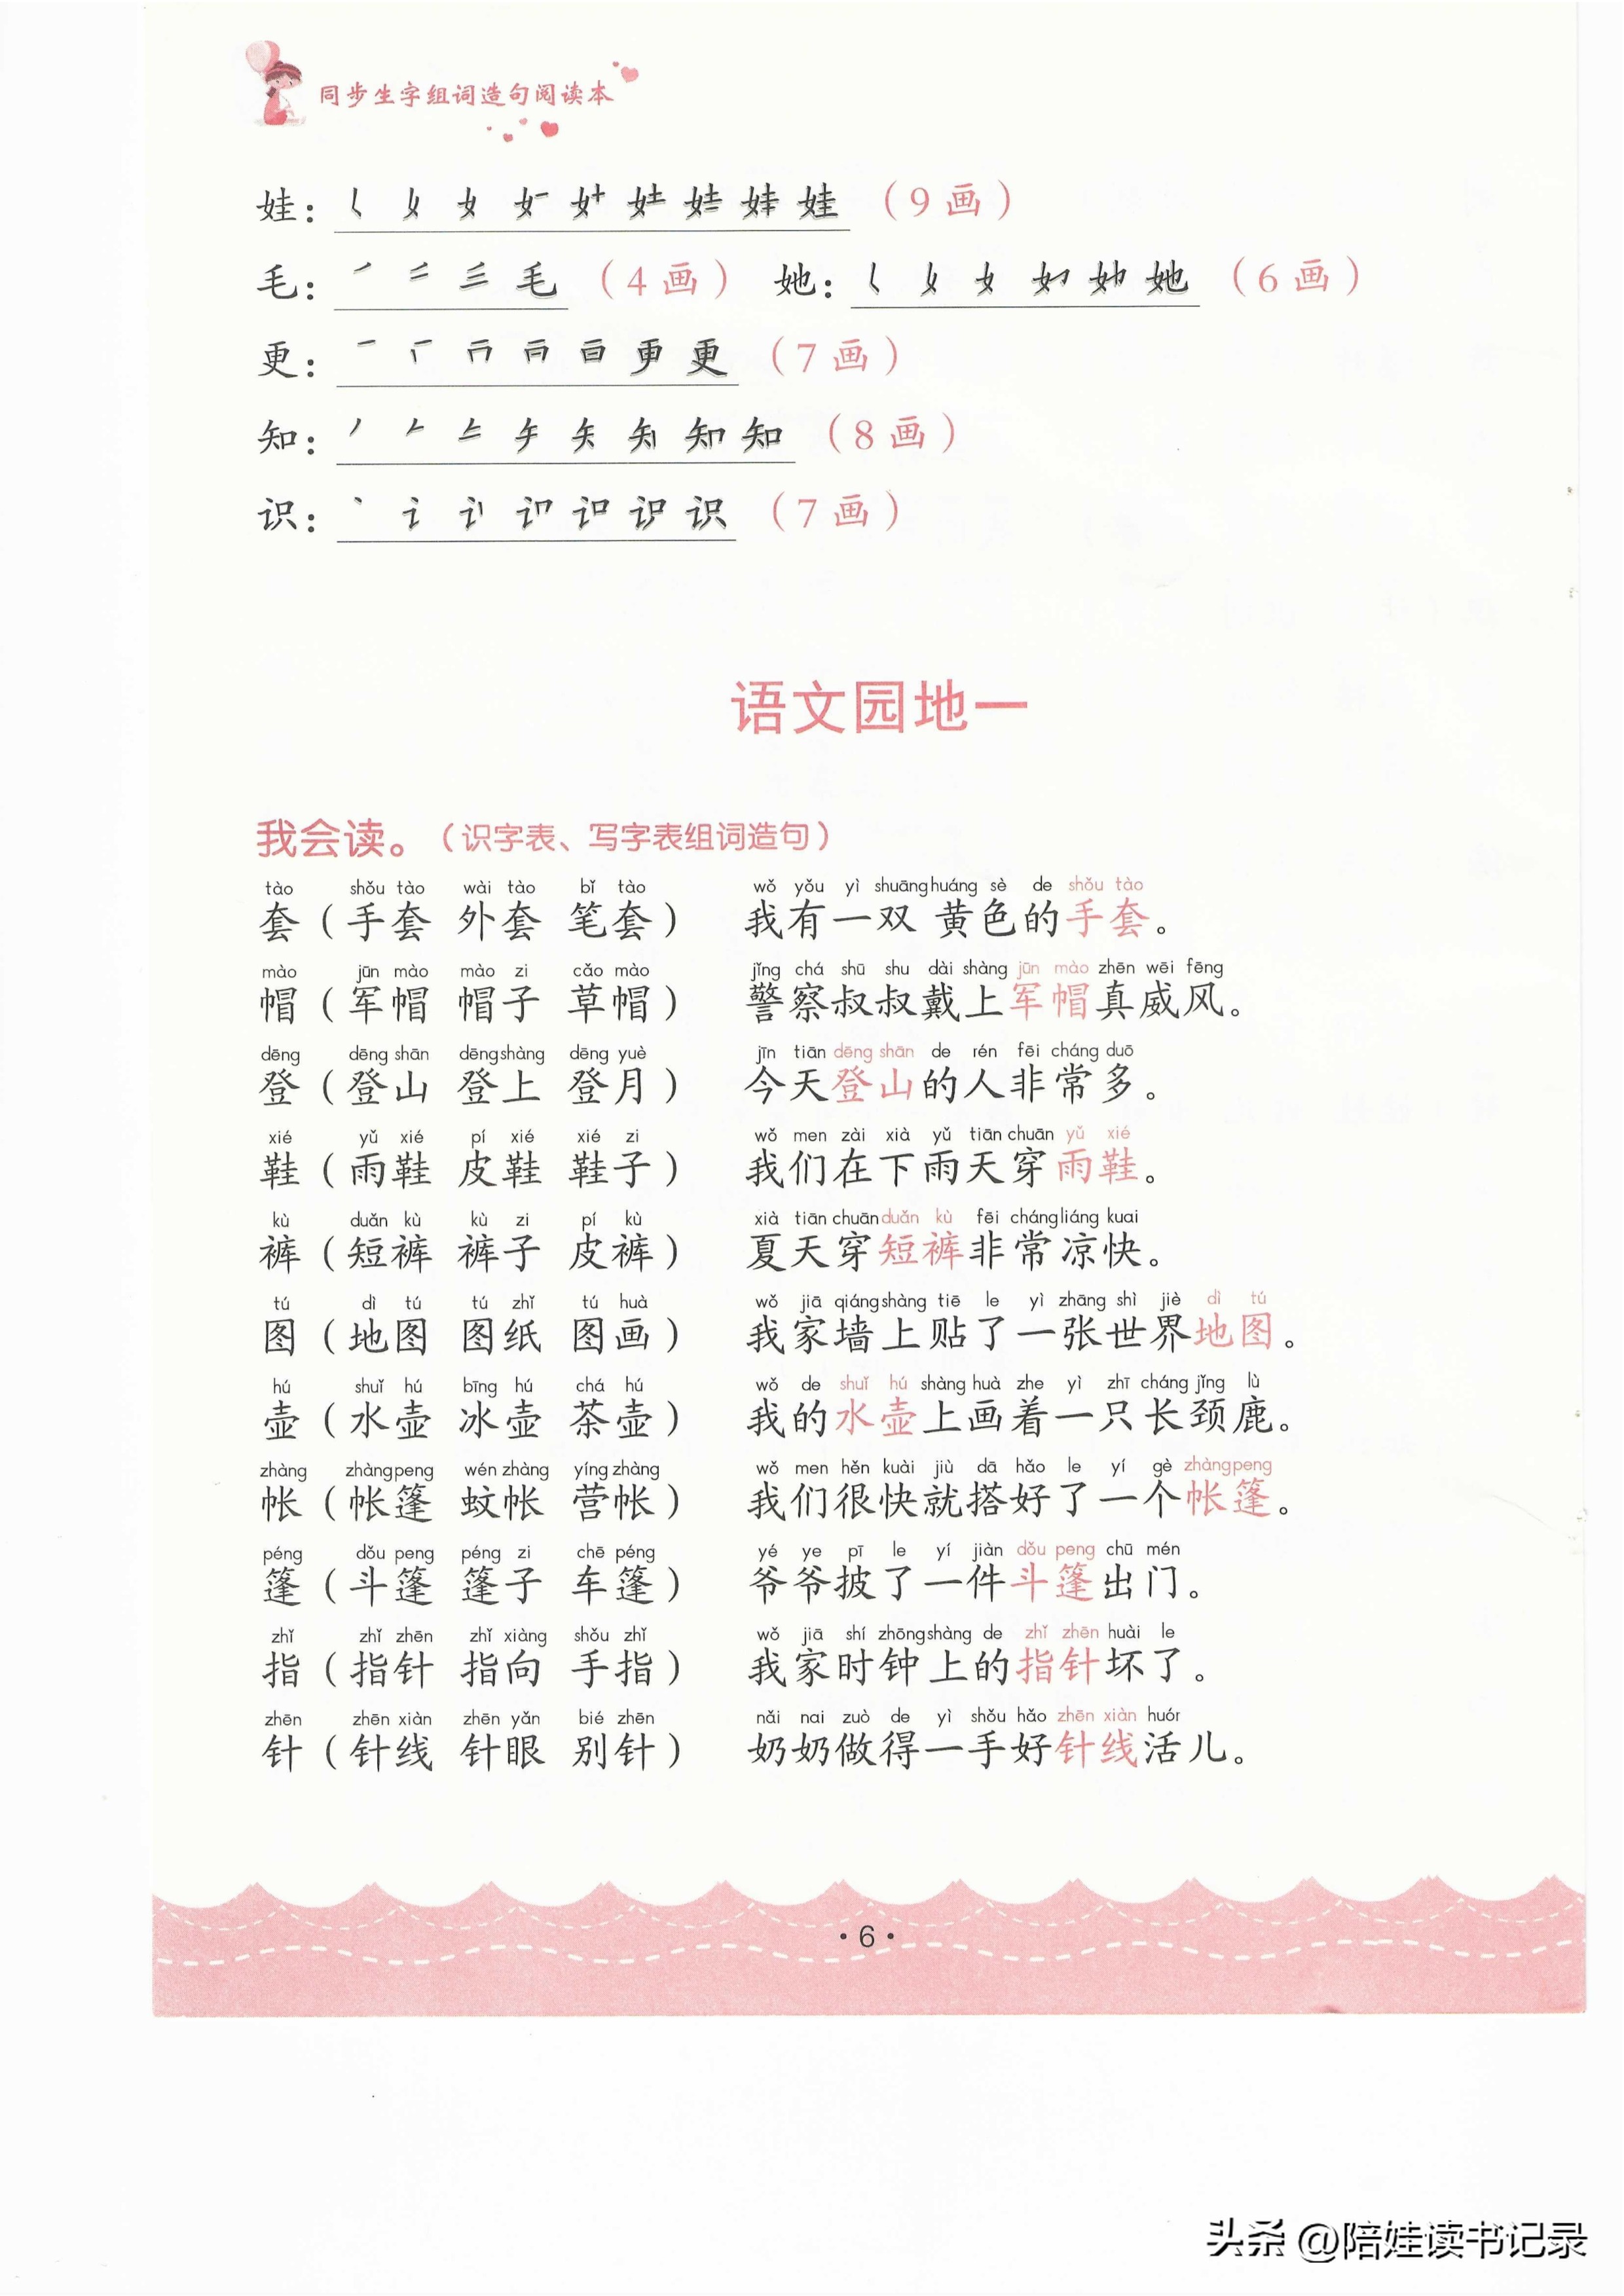 同步生字组词造句阅读本
娃：（9画）
毛：（4画） 她：（6画）
更：（7画）
知：（8画）
识：（7画）
语文园地一
我会读。（识字表、写字表组词造句）
tào shǒu tào wài tào bǐ tào wǒ yǒu yì shuāng huáng sè de shǒu tào
套（手套 外套 笔套） 我有一双黄色的手套。
mào jūn mào mào zi cǎo mào jǐng chá shū shu dài shàng jūn mào zhēn wēi fēng
帽（军帽 帽子 草帽） 警察叔叔戴上军帽真威风。
dēng dēng shān dēng shàng dēng yuè jīn tiān dēng shān de rén fēi cháng duō
登（登山 登上 登月） 今天登山的人非常多。
xié yǔ xié pí xié xié zi wǒ men zài xià yǔ tiān chuān yǔ xié
鞋（雨鞋 皮鞋 鞋子） 我们在下雨天穿雨鞋。
kù duǎn kù kù zi pí kù xià tiān chuān duǎn kù fēi cháng liáng kuai
裤（短裤 裤子 皮裤） 夏天穿短裤非常凉快。
tú dì tú tú zhǐ tú huà wǒ jiā qiáng shàng tiē le yì zhāng shì jiè dì tú
图（地图 图纸 图画） 我家墙上贴了一张世界地图。
hú shuǐ hú bīng hú chá hú wǒ de shuǐ hú shàng huà zhe yì zhī cháng jǐng lù
壶（水壶 冰壶 茶壶） 我的水壶上画着一只长颈鹿。
zhàng zhàng peng wén zhàng yíng zhàng wǒ men hěn kuài jiù dā hǎo le yí gè zhàng peng
帐（帐篷 蚊帐 营帐） 我们很快就搭好了一个帐篷。
péng dǒu peng péng zi chē péng yé ye pī le yí jiàn dǒu peng chū mén
篷（斗篷 篷子 车篷） 爷爷披了一件斗篷出门。
zhǐ zhǐ zhēn zhǐ xiàng shǒu zhǐ wǒ jiā shí zhōng shàng de zhǐ zhēn huài le
指（指针 指向 手指） 我家时钟上的指针坏了。
zhēn zhēn xiàn zhēn yǎn bié zhēn nǎi nai zuò de yì shǒu hǎo zhēn xiàn huór
针（针线 针眼 别针） 奶奶做得一手好针线活儿。
·6·
头条 @陪娃读书记录